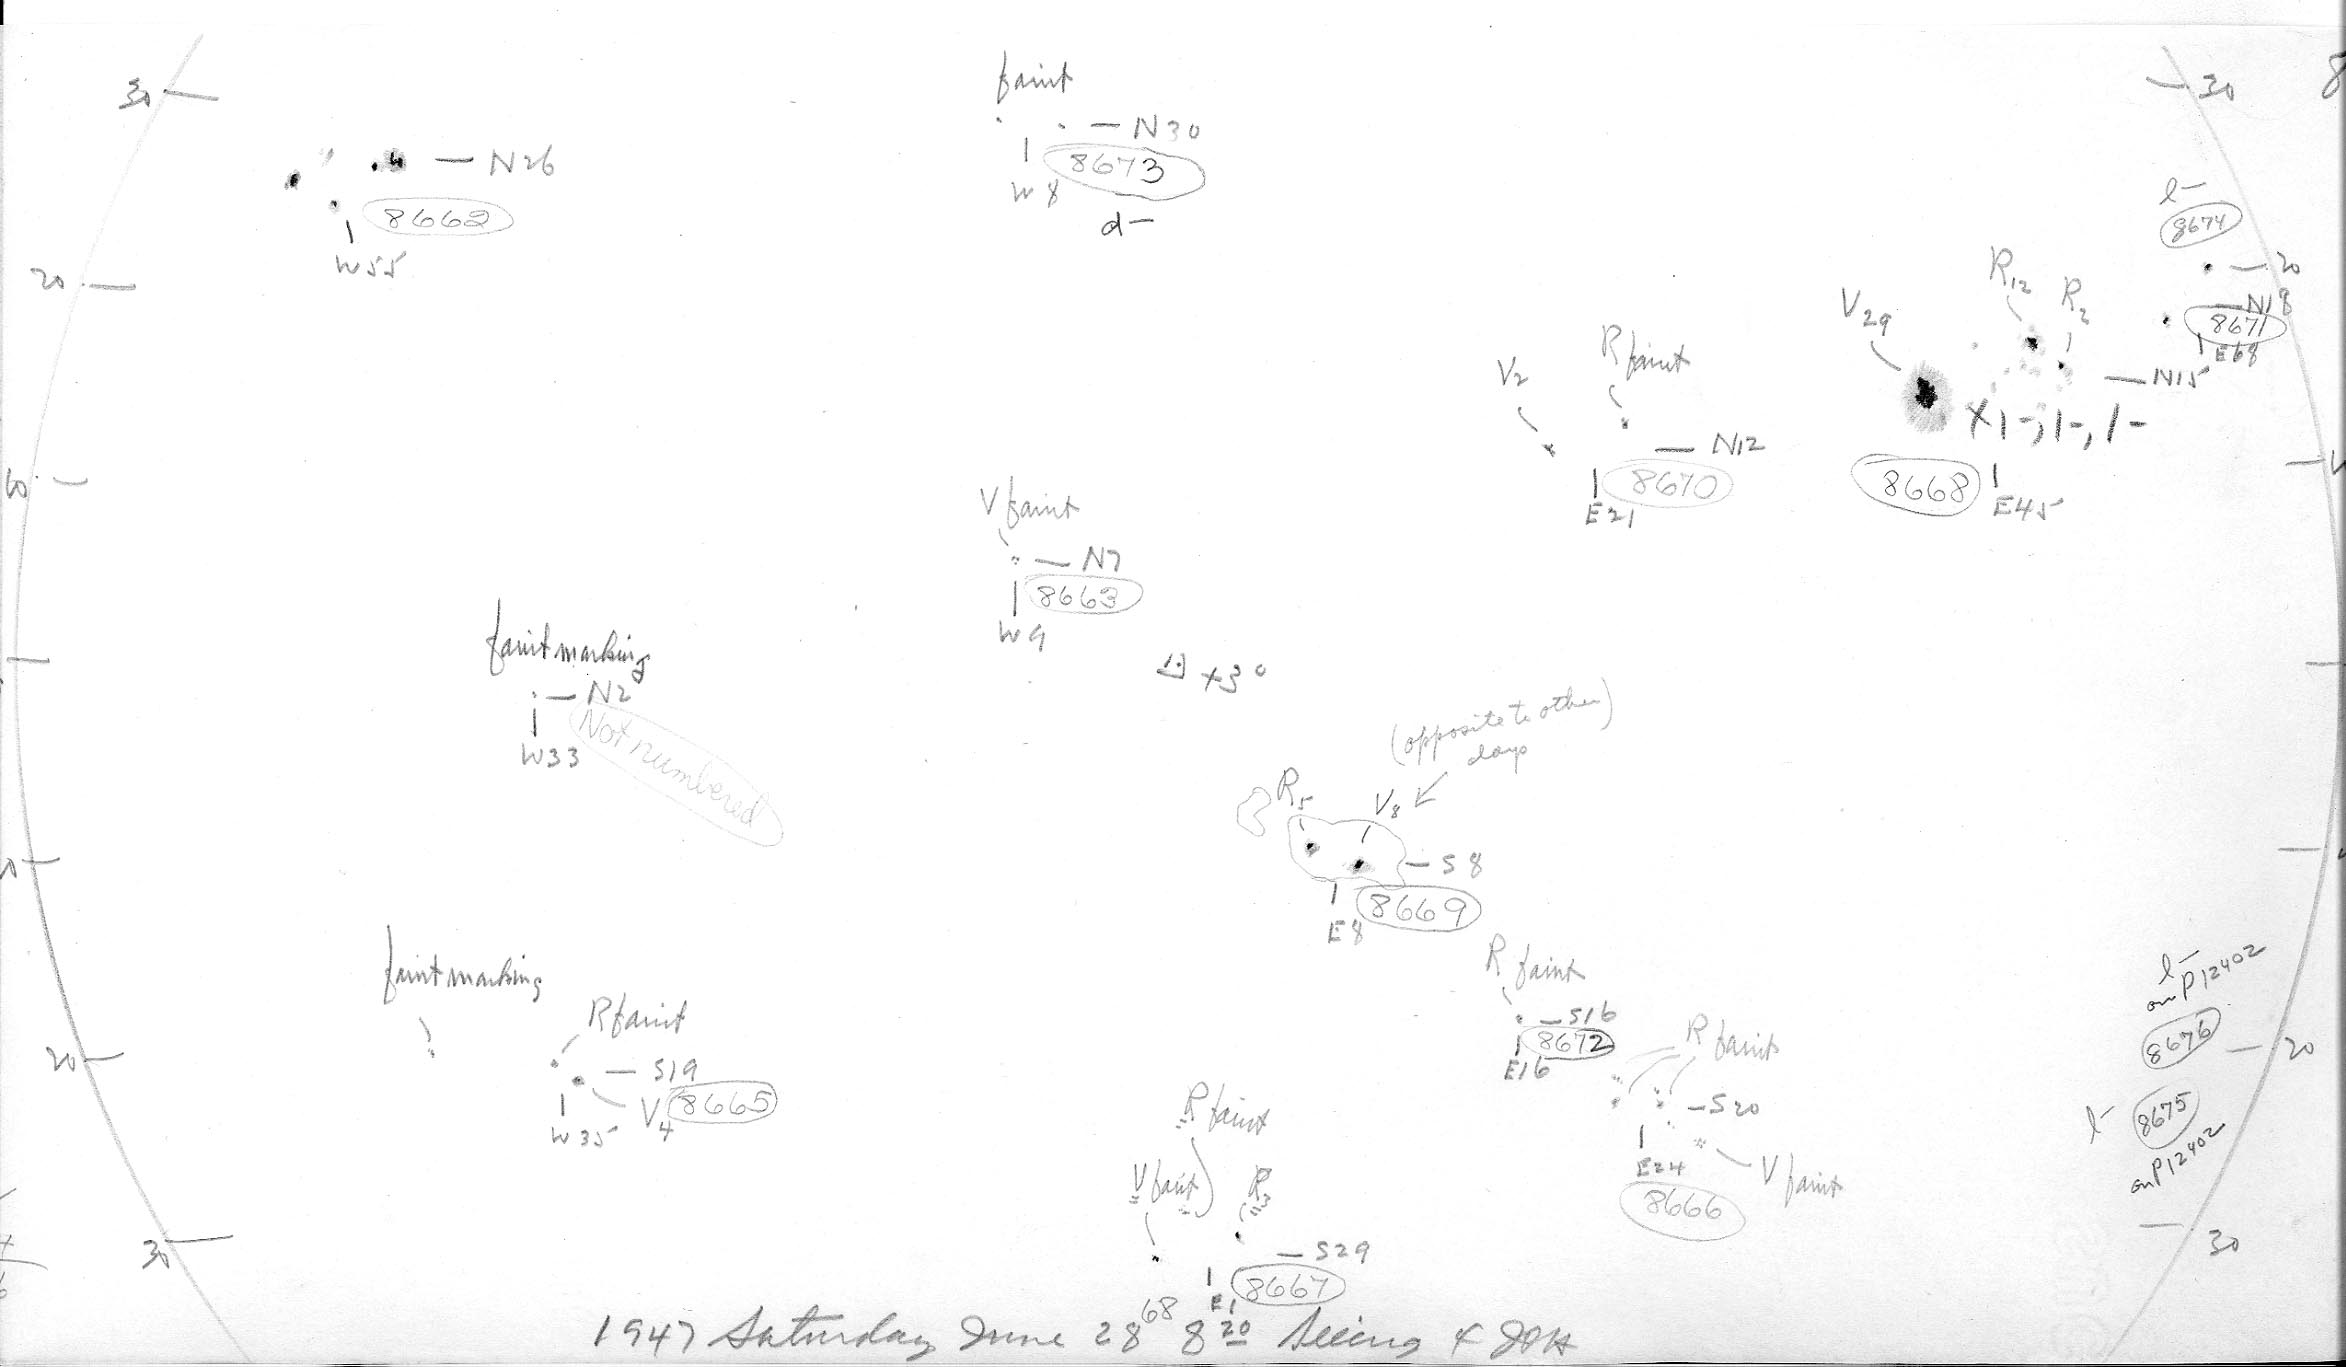 30
faint
N30
8673
W8
d-
30
8
N26
8662
W55
l-
8674
20
20
R12
R2
N18
8671
E68
V29
N15
x1-,1-,1-
8668
E45
V2
R faint
N12
8670
E21
10
V faint
N7
8663
W9
faint marking
N2
W33
Not numbered
+3°
(opposite to other
days
R5
V8
S8
8669
E8
R faint
S16
8672
E16
faint marking
R faint
S19
V4
8665
W35
20
R faint
S20
E24
8666
V faint
l-
on P12402
8676
20
l-
8675
on P12402
30
R faint
V faint
R3
S29
8667
E1
30
1947 Saturday June 28 68 8 20 Seeing 4 JOH